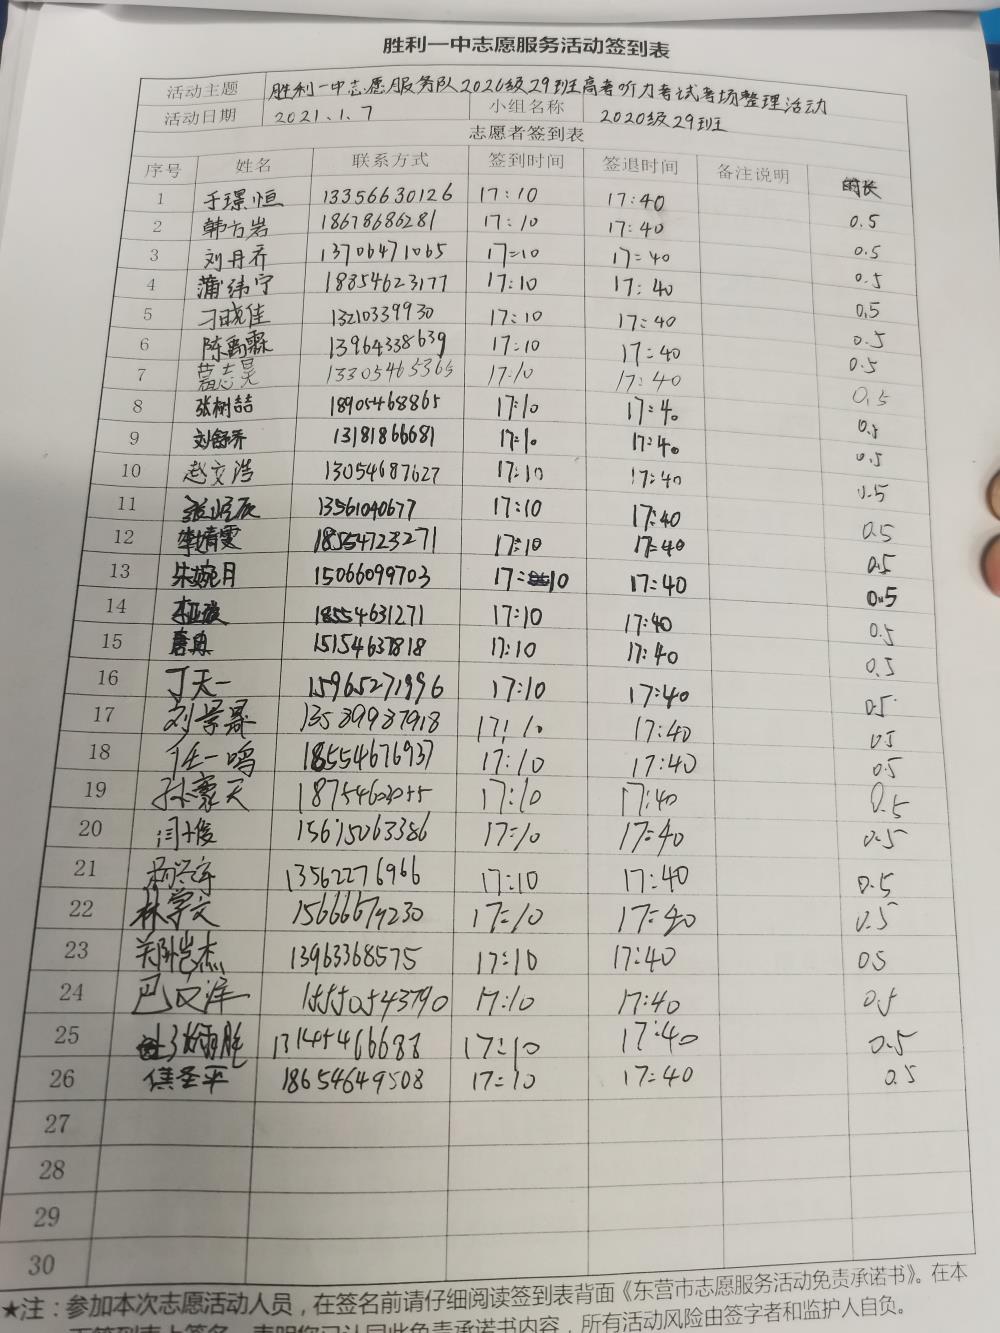 胜利一中志愿服务活动签到表
活动主题 胜利一中志愿服务队2020级29班高考听力考试考场整理活动
活动日期 2021.1.7 小组名称 2020级29班
志愿者签到表
序号 姓名 联系方式 签到时间 签退时间 备注说明 时长
1 于璟恒 13356630126 17:10 17:40 0.5
2 韩方岩 18678686281 17:10 17:40 0.5
3 刘丹乔 13706471065 17:10 17:40 0.5
4 蒲纬宁 18854623177 17:10 17:40 0.5
5 刁晓佳 13210339930 17:10 17:40 0.5
6 陈禹霖 13964338639 17:10 17:40 0.5
7 志昊 13305465365 17:10 17:40 0.5
8 张树喆 18905468865 17:10 17:40 0.5
9 刘舒乔 13181866681 17:10 17:40 0.5
10 赵文浩 13054687627 17:10 17:40 0.5
11 13561040677 17:10 17:40 0.5
12 李婧雯 18554723271 17:10 17:40 0.5
13 朱婉月 15066099703 17:10 17:40 0.5
14 18554631271 17:10 17:40 0.5
15 唐冉 15154637818 17:10 17:40 0.5
16 丁天一 15965271996 17:10 17:40 0.5
17 刘景晟 13589987918 17:10 17:40 0.5
18 任一鸣 18554676937 17:10 17:40 0.5
19 孙豪天 18754602055 17:10 17:40 0.5
20 闫俊 15615063386 17:10 17:40 0.5
21 13562276966 17:10 17:40 0.5
22 林学文 15666674230 17:10 17:40 0.5
23 郑凯杰 13963368575 17:10 17:40 0.5
24 巴文洋 15550543790 17:10 17:40 0.5
25 13145466688 17:10 17:40 0.5
26 侯圣平 18654649508 17:10 17:40 0.5
27
28
29
30
★注：参加本次志愿活动人员，在签名前请仔细阅读签到表背面《东营市志愿服务活动免责承诺书》。在本
页签到表上签名，表明您已认同此免责承诺书内容，所有活动风险由签字者和监护人自负。